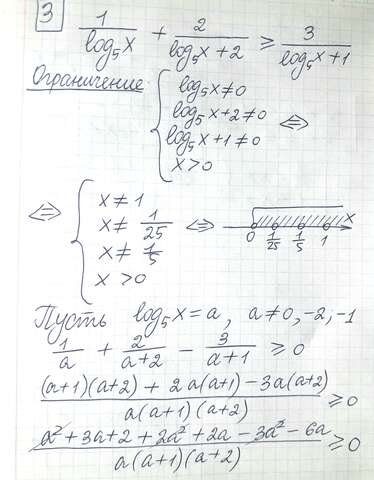 3
1/log₅x + 2/(log₅x+2) ⩾ 3/(log₅x+1)
Ограничение
{ log₅x ≠ 0
log₅x+2 ≠ 0
log₅x+1 ≠ 0 ⇔
x > 0
⇔ { x ≠ 1
x ≠ 1/25 ⇔
x ≠ 1/5
x > 0
0 1/25 1/5 1 x
Пусть log₅x = a, a ≠ 0, -2; -1
1/a + 2/(a+2) - 3/(a+1) ⩾ 0
((a+1)(a+2) + 2a(a+1) - 3a(a+2))/(a(a+1)(a+2)) ⩾ 0
(a² + 3a + 2 + 2a² + 2a - 3a² - 6a)/(a(a+1)(a+2)) ⩾ 0